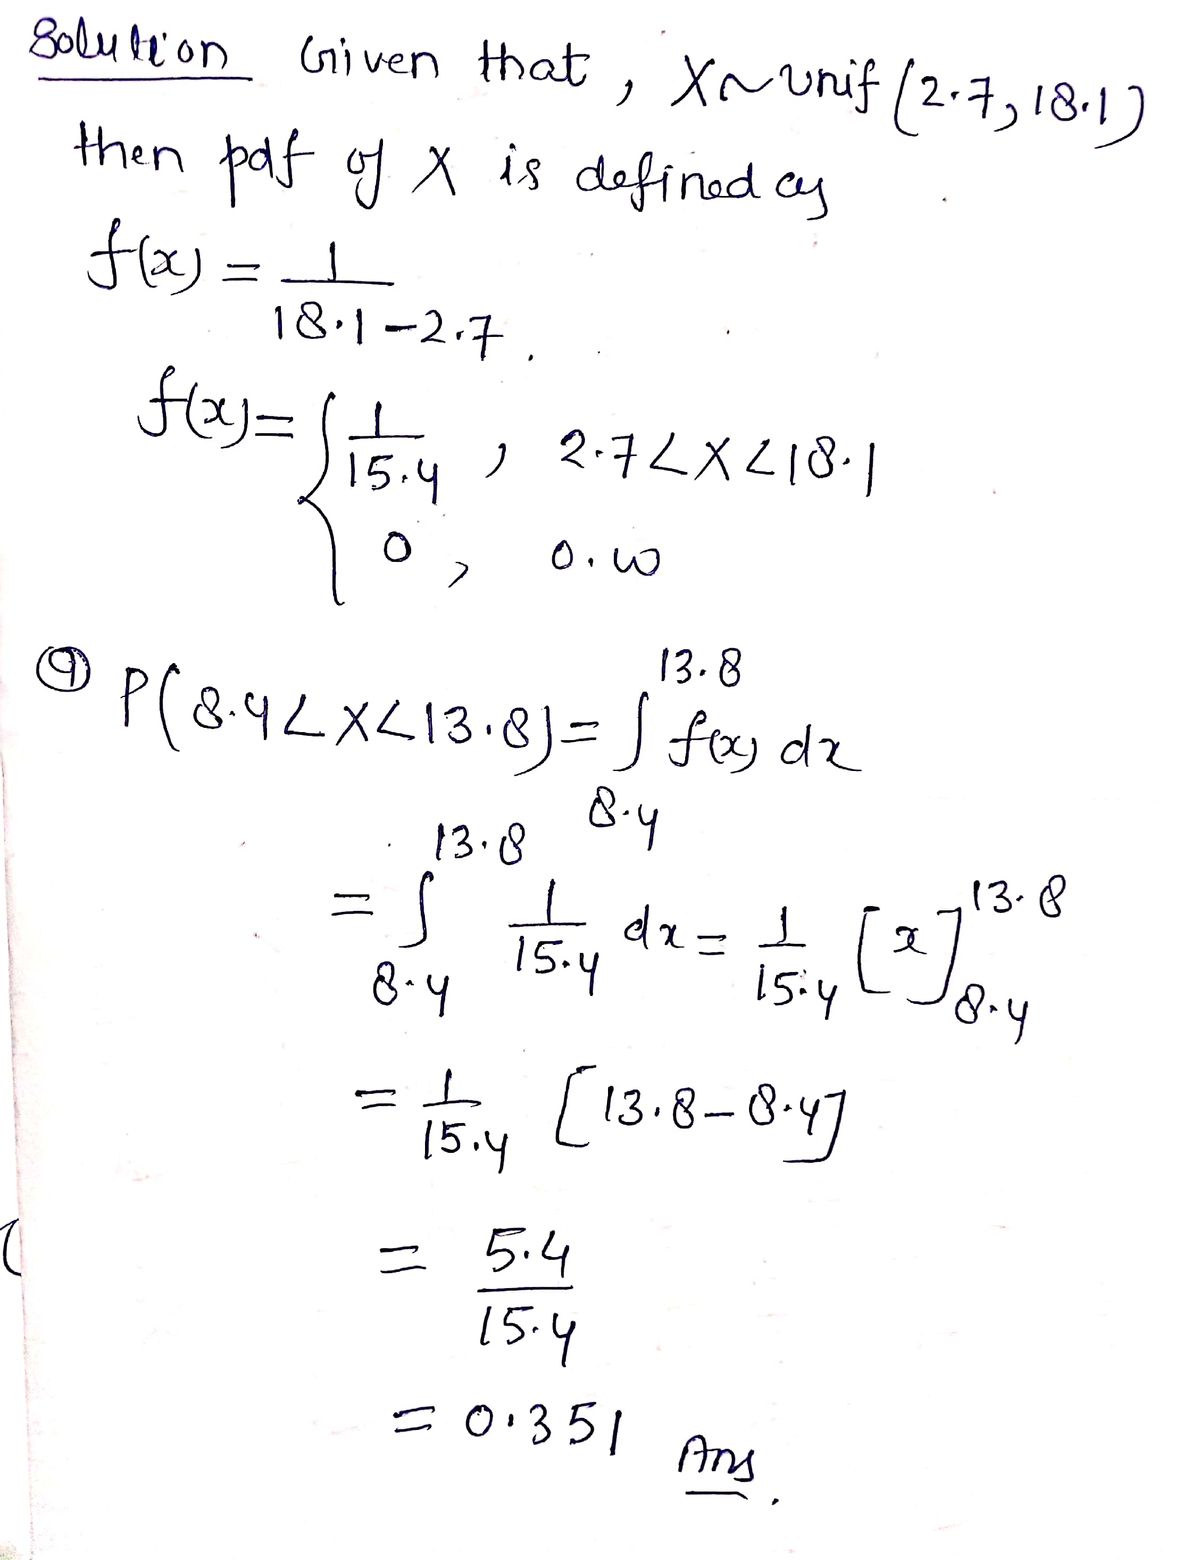 Solution Given that , X~unif (2.7, 18.1)
then pdf of X is defined as
f(x) = 1/(18.1-2.7).
f(x) = { 1/15.4 , 2.7<X<18.1
0 , o.w
⑨ P(8.4<X<13.8) = ∫_{8.4}^{13.8} f(x) dx
= ∫_{8.4}^{13.8} 1/15.4 dx = 1/15.4 [x]_{8.4}^{13.8}
= 1/15.4 [13.8-8.4]
= 5.4/15.4
= 0.351 Ans.